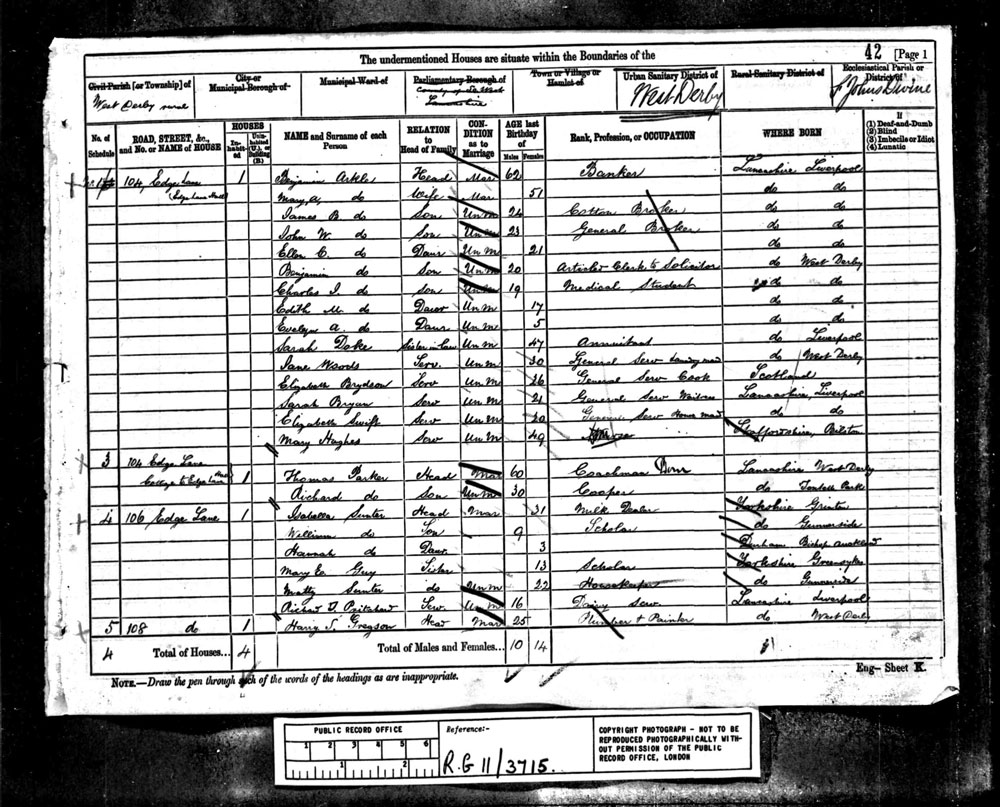 The undermentioned Houses are situate within the Boundaries of the
42 [Page 1
Civil Parish [or Township] of
City or Municipal Borough of
Municipal Ward of
Parliamentary Borough of
Town or Village or Hamlet of
Urban Sanitary District of
Rural Sanitary District of
Ecclesiastical Parish or District of
West Derby
West Derby
St Johns Divine
No. of Schedule ROAD, STREET, &c., and No. or NAME of HOUSE HOUSES Inhabited Uninhabited (U.), or Building (B.) NAME and Surname of each Person RELATION to Head of Family CONDITION as to Marriage AGE last Birthday of Males Females Rank, Profession, or OCCUPATION WHERE BORN If (1) Deaf-and-Dumb (2) Blind (3) Imbecile or Idiot (4) Lunatic
104, Edge Lane 1 Benjamin Arkle Head Mar 62 Banker Lancashire Liverpool
(Edge Lane Hall) Mary, A, do Wife Mar 51 do do
James B. do Son Unm 24 Cotton Broker do do
John W. do Son Unm 23 General Broker do do
Ellen C. do Daur Unm 21 do do
Benjamin do Son Unm 20 Articled Clerk to Solicitor do West Derby
Charles J. do Son Unm 19 Medical Student do do
Edith M. do Daur Unm 17 do do
Evelyn A. do Daur Unm 5 do do
Sarah Sister in law Unm 47 Annuitant do Liverpool
Jane Woods Serv. Unm 30 General Serv do West Derby
Elizabeth Brydson Serv Unm 26 General Serv Cook Scotland
Sarah Bryan Serv Unm 21 General Serv Waitress Lancashire, Liverpool
Elizabeth Swift Serv Unm 20 General Serv House maid do do
Mary Hughes Serv Unm 49 Nurse Staffordshire, Bilston
3 104 Edge Lane
1 Thomas Parker Head Mar 60 Coachman Dom Lancashire West Derby
Richard do Son Unm 30 Cooper do Park
4 106 Edge Lane 1 Isabella Sunter Head Mar 31 Milk Dealer Yorkshire Grinton
William do Son 9 Scholar do Gunnerside
Hannah do Daur. 3 Durham Bishop Auckland
Mary E. Guy Sister 13 Scholar Yorkshire
Matty Sunter do Unm 22 Housekeeper do
Richard D. Pritchard Serv. Unm 16 Dairy Serv. Lancashire Liverpool
5 108 do 1 Harry S. Gregson Head Mar 25 Plumber & Painter do West Derby
4 Total of Houses... 4 Total of Males and Females... 10 14
NOTE.—Draw the pen through such of the words of the headings as are inappropriate.
Eng—Sheet K.
PUBLIC RECORD OFFICE
1 2 3 4 5 6
1 2
Reference:-
R.G 11/3715.
COPYRIGHT PHOTOGRAPH - NOT TO BE
REPRODUCED PHOTOGRAPHICALLY WITH-
OUT PERMISSION OF THE PUBLIC
RECORD OFFICE, LONDON